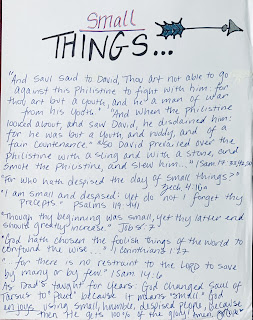 Small
THINGS...
"And Saul said to David, Thou art not able to go
against this Philistine to fight with him: for
thou art but a youth, and he a man of war
from his youth." "And when the Philistine
looked about, and saw David, he disdained him:
for he was but a youth, and ruddy, and of a
fair countenance." "So David prevailed over the
Philistine with a sling and with a stone, and
smote the Philistine, and slew him..." I Sam. 17:33, 42,
"For who hath despised the day of small things?"
Zech. 4:10a
"I am small and despised: yet do not I forget thy
precepts." Psalms 119:141
"Though thy beginning was small, yet thy latter end
should greatly increase." Job 8:7
"God hath chosen the foolish things of the world to
confound the wise..." I Corinthians 1:27
"...for there is no restraint to the LORD to save
by many or by few." I Sam. 14:6
As Dad's taught for years: God changed Saul of
Tarsus to "Paul" because it means "small." God
enjoys using small, humble, despised people, because
then He gets 100% of the glory! Amen.